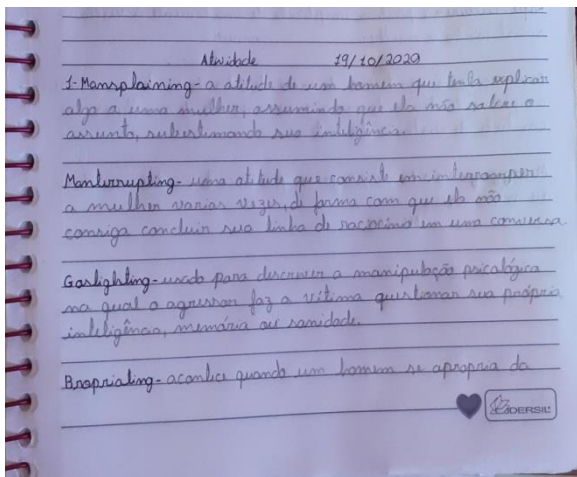 Atividade 19/10/2020
1-Mansplaining- a atitude de um homem que tenta explicar
algo a uma mulher, assumindo que ela não sabe o
assunto, subestimando sua inteligência.
Manterrupting- uma atitude que consiste em interromper
a mulher varias vezes, de forma com que ela não
consiga concluir sua linha de raciocínio em uma conversa.
Gaslighting- usado para descrever a manipulação psicológica
na qual o agressor faz a vítima questionar sua própria
inteligência, memória ou sanidade.
Bropriating- acontece quando um homem se apropria da
DERSIL